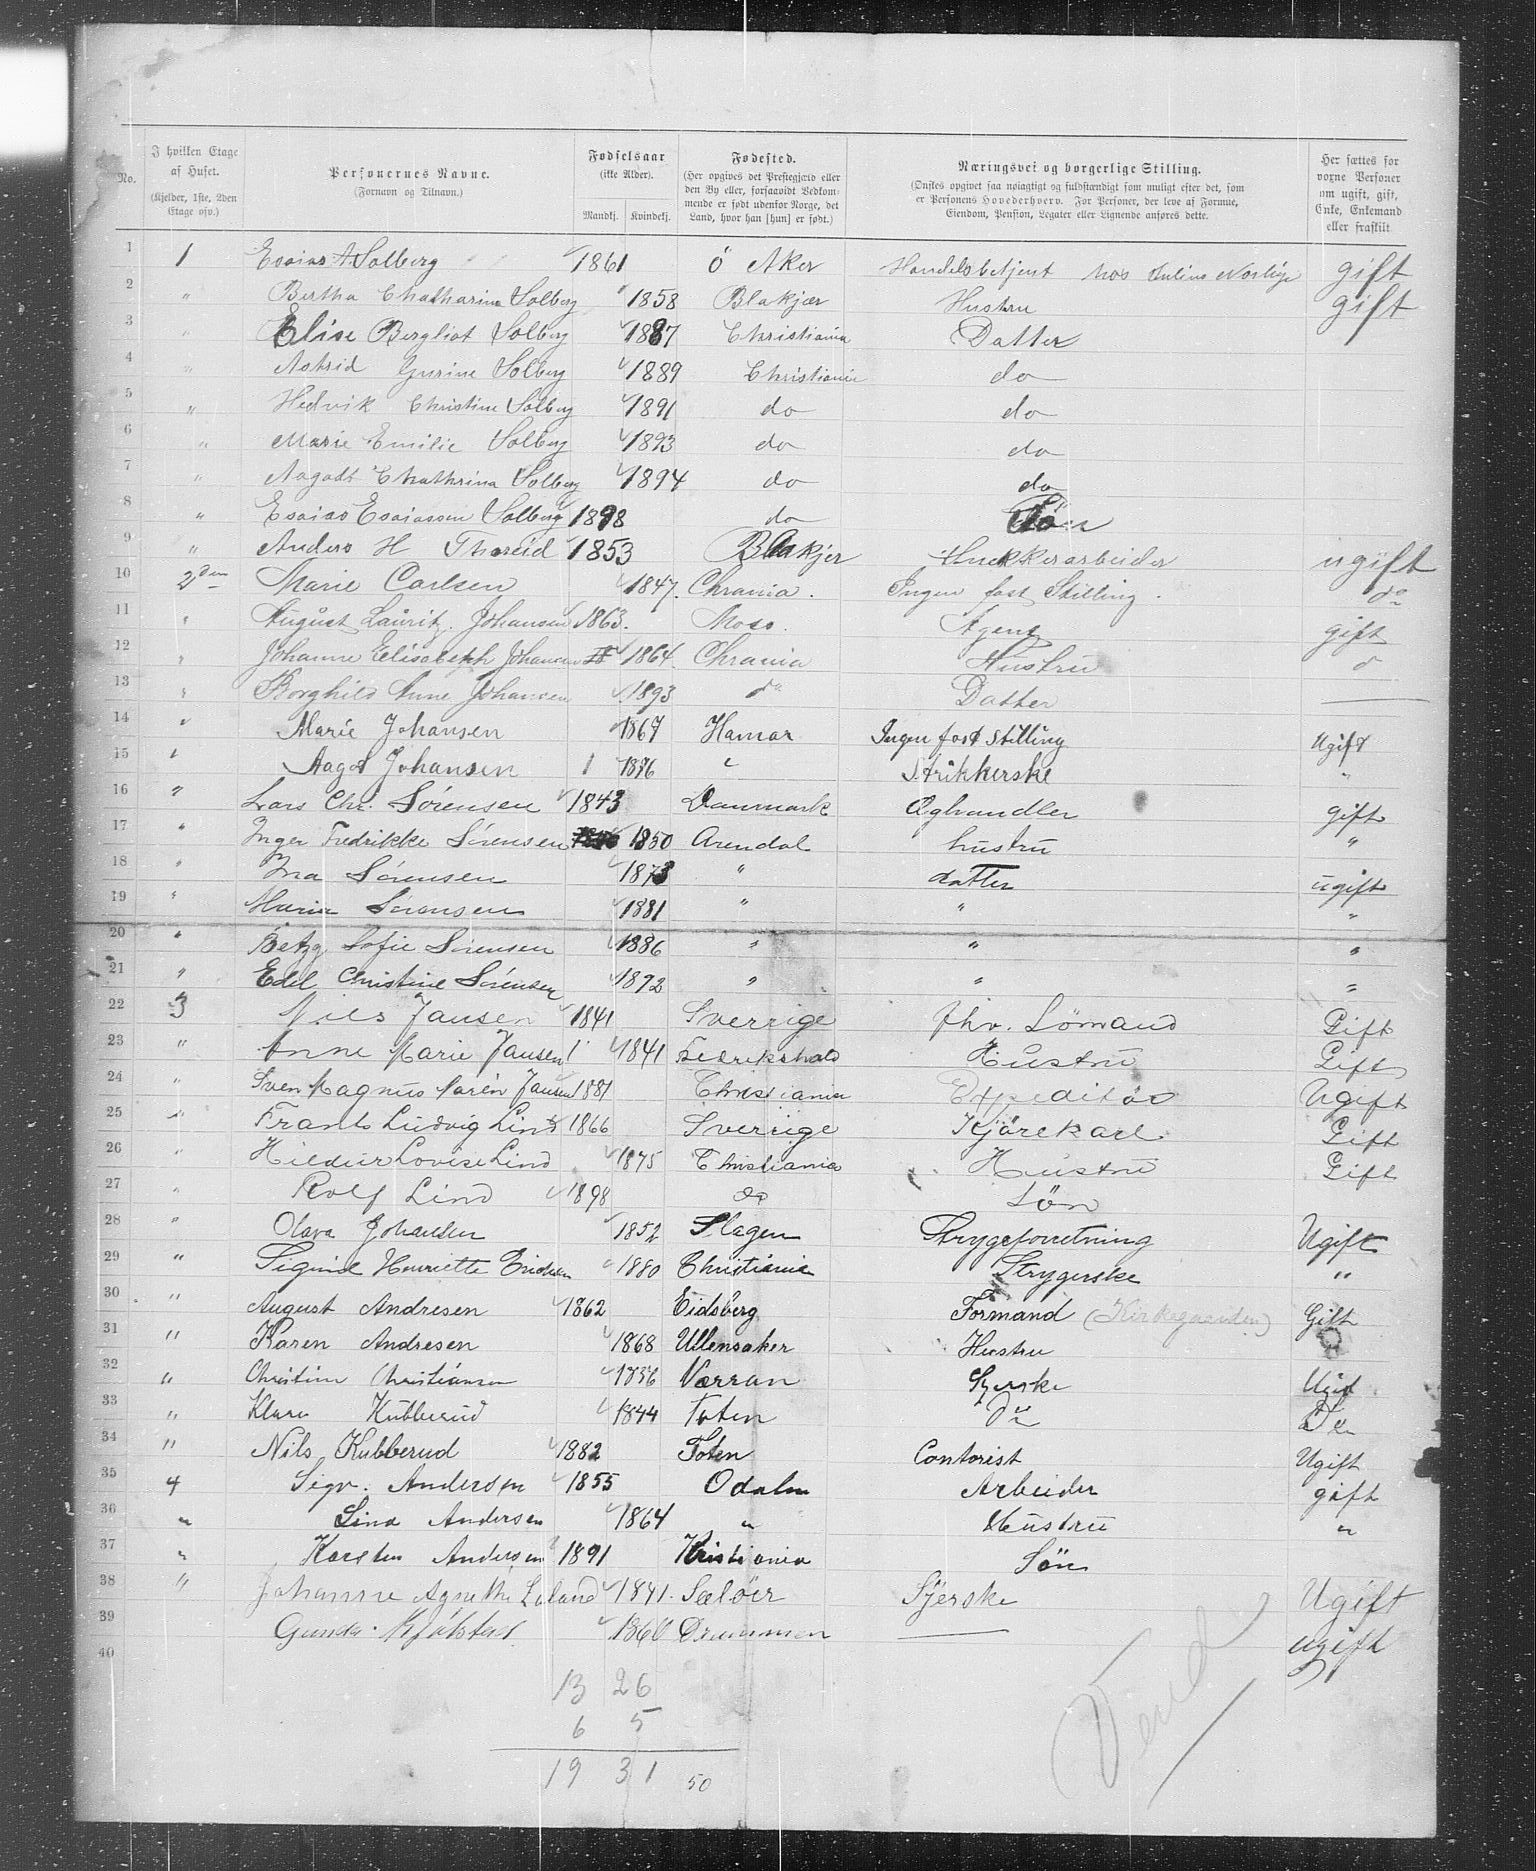 No. | I hvilken Etage af Huset. (Kjelder, 1ste, 2den Etage osv.) | Personernes Navne. (Fornavn og Tilnavn.) | Fødselsaar (ikke Alder). Mandkj. Kvindekj. | Fødested. (Her opgives det Prestegjæld eller den By eller, forsaavidt Vedkommende er født udenfor Norge, det Land, hvor han [hun] er født.) | Næringsvei og borgerlige Stilling. (Ønskes opgivet saa nøiagtigt og fuldstændigt som muligt efter det, som er Personens Hovederhverv. For Personer, der leve af Formue, Eiendom, Pension, Legater eller Lignende anføres dette.) | Her sættes for vorne Personer om ugift, gift, Enke, Enkemand eller fraskilt
1 1 Esaias A Solberg 1861 Ö Aker Handelsbetjent hos Julius gift
2 " Bertha Chatharina Solberg 1858 Blakjær Hustru gift
3 " Elise Bergliot Solberg 1887 Christiania Datter
4 " Astrid Gurine Solberg 1889 Christiania do
5 " Hedvik Christine Solberg 1891 do do
6 " Marie Emilie Solberg 1893 do do
7 " Aagodt Chathrina Solberg 1894 do do
8 " Esaias Esaiassen Solberg 1898 do Sön
9 " Anders H Thoreid 1853 Blakjer ugift
10 2den Marie Carlsen 1847. Chrania. Ingen fast Stilling. do
11 " August Lauritz Johansen 1863. Moss. Agent gift
12 " Johanne Elisabeth Johansen 1864. Chrania Hustru d
13 " Borghild Anne Johansen 1893 do Datter
14 " Marie Johansen 1867 Hamar Ingen fast Stilling Ugift
15 " Aagot Johansen 1 1876 " Strikkerske "
16 " Lars Chr. Sörensen 1843 Danmark Æghandler gift
17 " Inger Fredrikke Sörensen 1850 Arendal hustru "
18 " Ina Sörensen 1873 " datter ugift
19 " Maria Sörensen 1881 " " "
20 " Betzy Sofie Sörensen 1886 " " "
21 " Edel Christine Sörensen 1892 " " "
22 3 Nils Jansen 1841 Sverrige fhv. Sömand Gift
23 " Anne Marie Jansen 1 1841 Fredrikshald Hustru Gift
24 " Sven Magnus Marén Jansen 1881 Christiania Expeditör Ugift
25 " Frants Ludvig Lind 1866 Sverrige Kjörekarl Gift
26 " Hildur Lovise Lind 1875 Christiania Hustru Gift
27 " Rolf Lind 1898 do Sön
28 " Olava Johansen 1852 Slagen Strygeforretning Ugift
29 " Sigrid Henriette Ericksen 1880 Christiania Strygerske "
30 " August Andresen 1862 Eidsberg Formand (Kirkegaarden) Gift
31 " Karen Andresen 1868 Ullensaker Hustru
32 " Christine Christiansen 1836 Værran Syerske Ugift
33 " Klara Kubberud 1844 Toten Do Do
34 " Nils Kubberud 1882 Toten Contorist Ugift
35 4 Sigv. Andersen 1855 Odalen Arbeider gift
36 " Lina Andersen 1864 " Hustru "
37 " Karsten Andersen 1891 Kristiania Sön
38 " Johanne Agnethe Leland 1841. Sælöer Sjerske Ugift
39 Gunda 1860 Drammen — ugift
40
13 26
6 5
19 31 50
Vend